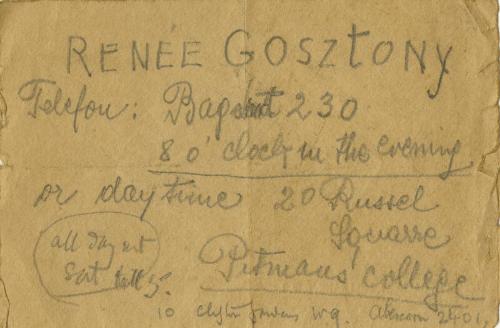 RENÉE GOSZTONY
Telefon: Bagshot 230
8 o' clock in the evening
or daytime 20 Russel
Squarre
Pitmans college
all day
Sat till 5.
10 Gardens W9. Abercorn 2401.